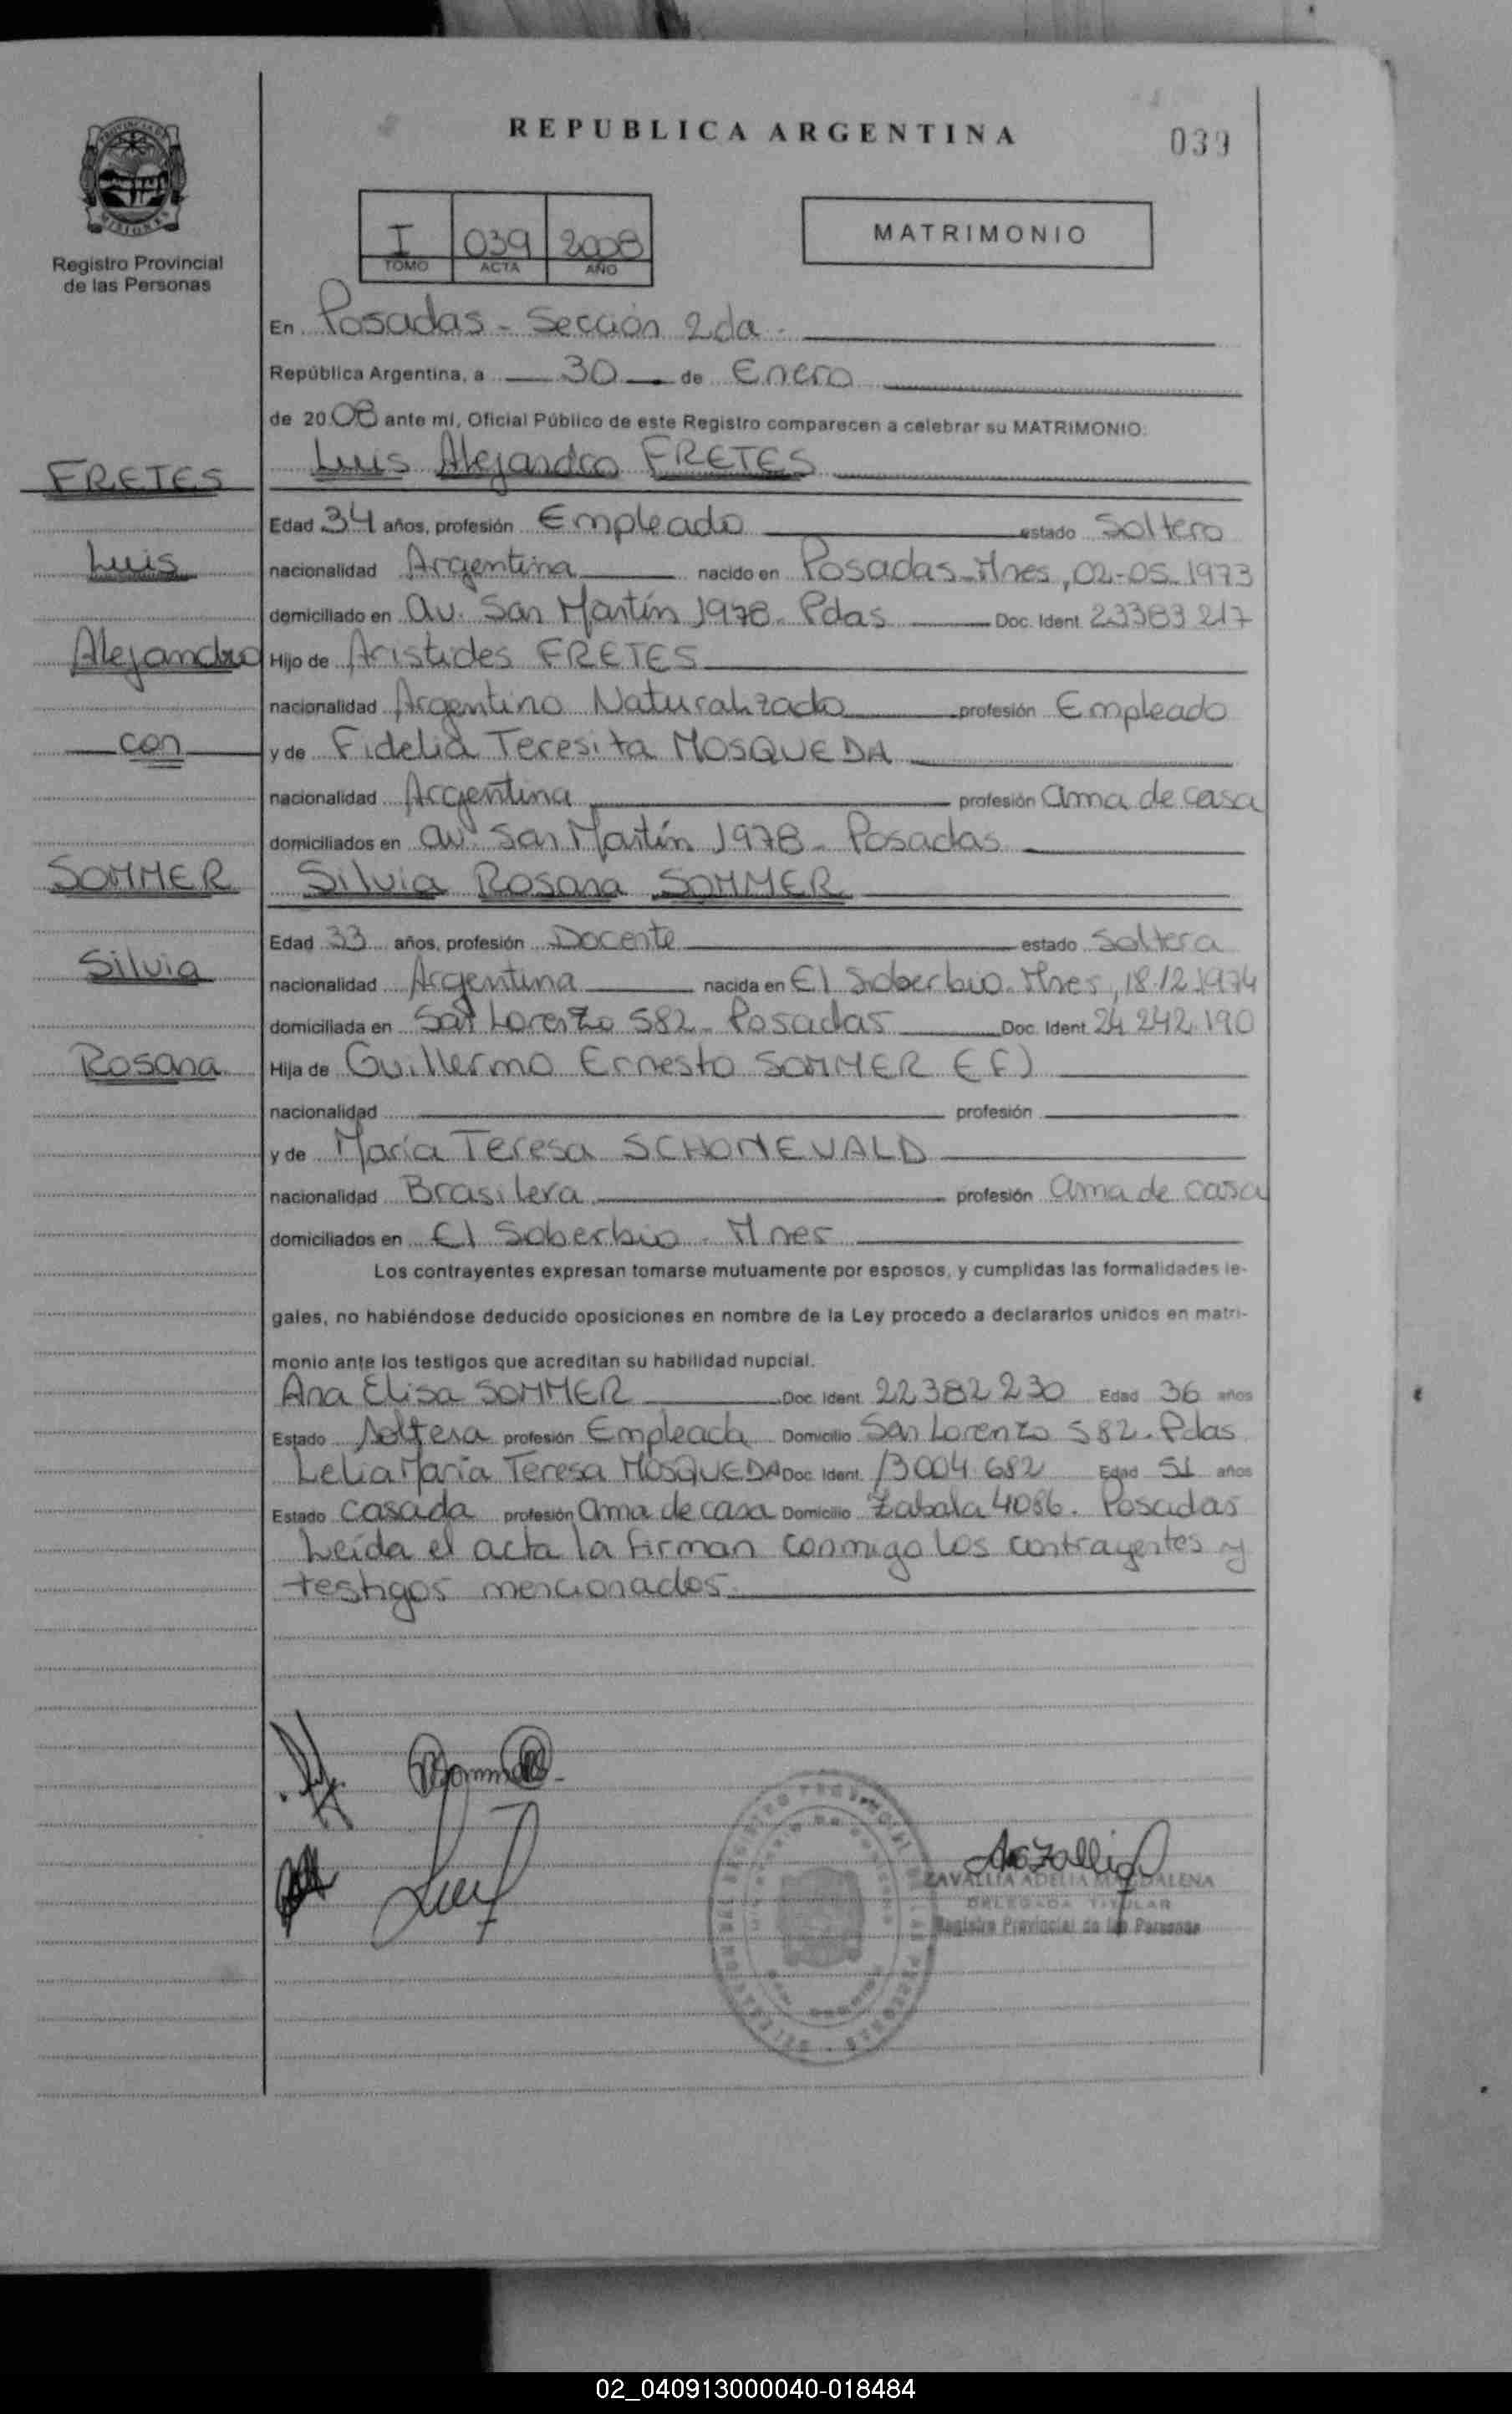 REPUBLICA ARGENTINA
039
PROVINCIA DE
MISIONES
Registro Provincial
de las Personas
I 039 2008
TOMO ACTA AÑO
MATRIMONIO
En Posadas - Sección 2da -
República Argentina, a 30 de Enero
de 2008 ante mí, Oficial Público de este Registro comparecen a celebrar su MATRIMONIO:
FRETES
Luis Alejandro FRETES
Edad 34 años, profesión Empleado estado Soltero
Luis
nacionalidad Argentina nacido en Posadas-Mnes, 02-05-1973
domiciliado en Av. San Martín 1978. Pdas Doc. Ident. 23383217
Alejandro
Hijo de Aristides FRETES
nacionalidad Argentino Naturalizado profesión Empleado
con
y de Fidelia Teresita MOSQUEDA
nacionalidad Argentina profesión ama de casa
domiciliados en av. San Martín 1978 - Posadas
SOMMER
Silvia Rosana SOMMER
Edad 33 años, profesión Docente estado Soltera
Silvia
nacionalidad Argentina nacida en El Soberbio. Mnes, 18.12.1974
domiciliada en San Lorenzo 582 - Posadas Doc. Ident. 24 242 190
Rosana
Hija de Guillermo Ernesto SOMMER (F)
nacionalidad profesión
y de María Teresa SCHONEVALD
nacionalidad Brasilera profesión ama de casa
domiciliados en El Soberbio - Mnes
Los contrayentes expresan tomarse mutuamente por esposos, y cumplidas las formalidades le-
gales, no habiéndose deducido oposiciones en nombre de la Ley procedo a declararlos unidos en matri-
monio ante los testigos que acreditan su habilidad nupcial.
Ana Elisa SOMMER Doc. Ident. 22382230 Edad 36 años
Estado Soltera profesión Empleada Domicilio San Lorenzo 582. Pdas
Lelia María Teresa MOSQUEDA Doc. Ident. 13004682 Edad 51 años
Estado Casada profesión ama de casa Domicilio Zabala 4086. Posadas
Leída el acta la firman conmigo los contrayentes y
testigos mencionados
ZAVALLIA ADELIA MAGDALENA
DELEGADA TITULAR
Registro Provincial de las Personas
02_040913000040-018484